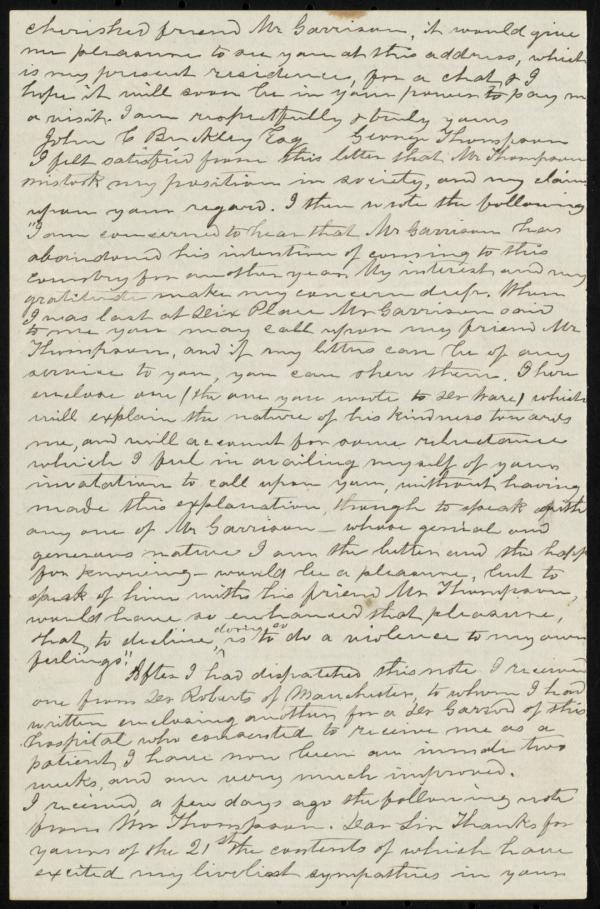 cherished friend Mr Garrison, it would give
me pleasure to see you at this address, which
is my present residence, for a chat, & I
hope it will soon be in your power to pay m
a visit. I am respectfully & truly yours
John C Buckley Esq George Thompson
I felt satisfied from this letter that Mr Thompson
mistook my position in society, and my claim
upon your regard. I then wrote the following
"I am concerned to hear that Mr Garrison has
abandoned his intention of coming to this
country for another year. My interest and my
gratitude make my concern deep. When
I was last at Dix Place Mr Garrison said
to me you may call upon my friend Mr
Thompson, and if my letters can be of any
service to you, you can shew them. I here
enclose one (the one you wrote to Dr Ware) which
will explain the nature of his kindness towards
me, and will account for some reluctance
which I feel in availing myself of your
invatation to call upon you, without having
made this explanation, though to speak with
any one of Mr Garrison — whose genial and
generous nature I am the better and the happ
for knowing — would be a pleasure, but to
speak of him with his friend Mr Thompson,
would have so enhanced that pleasure,
that, to decline doing so is to do a violence to my own
feelings".
After I had dispatched this note I received
one from Dr Roberts of Manchester, to whom I had
written enclosing another, for a Dr Garrod of this
hospital who consented to receive me as a
patient, I have now been an inmate two
weeks, and am very much improved.
I received, a few days ago the following note
from Mr Thompson. Dear Sir Thanks for
yours of the 21st the contents of which have
excited my liveliest sympathies in your